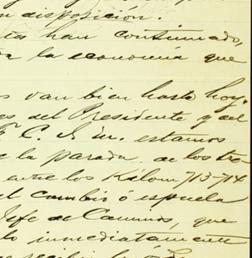 n disposición.
ta han continuado,
la economía que
s van bien hasta hoy
es del Presidente y del
F. C. I. m. estamos
e la parada de los tre
entre los Kilom 713-714
el cambio ó espuela
Jefe de Caminos, que
to inmediatamente